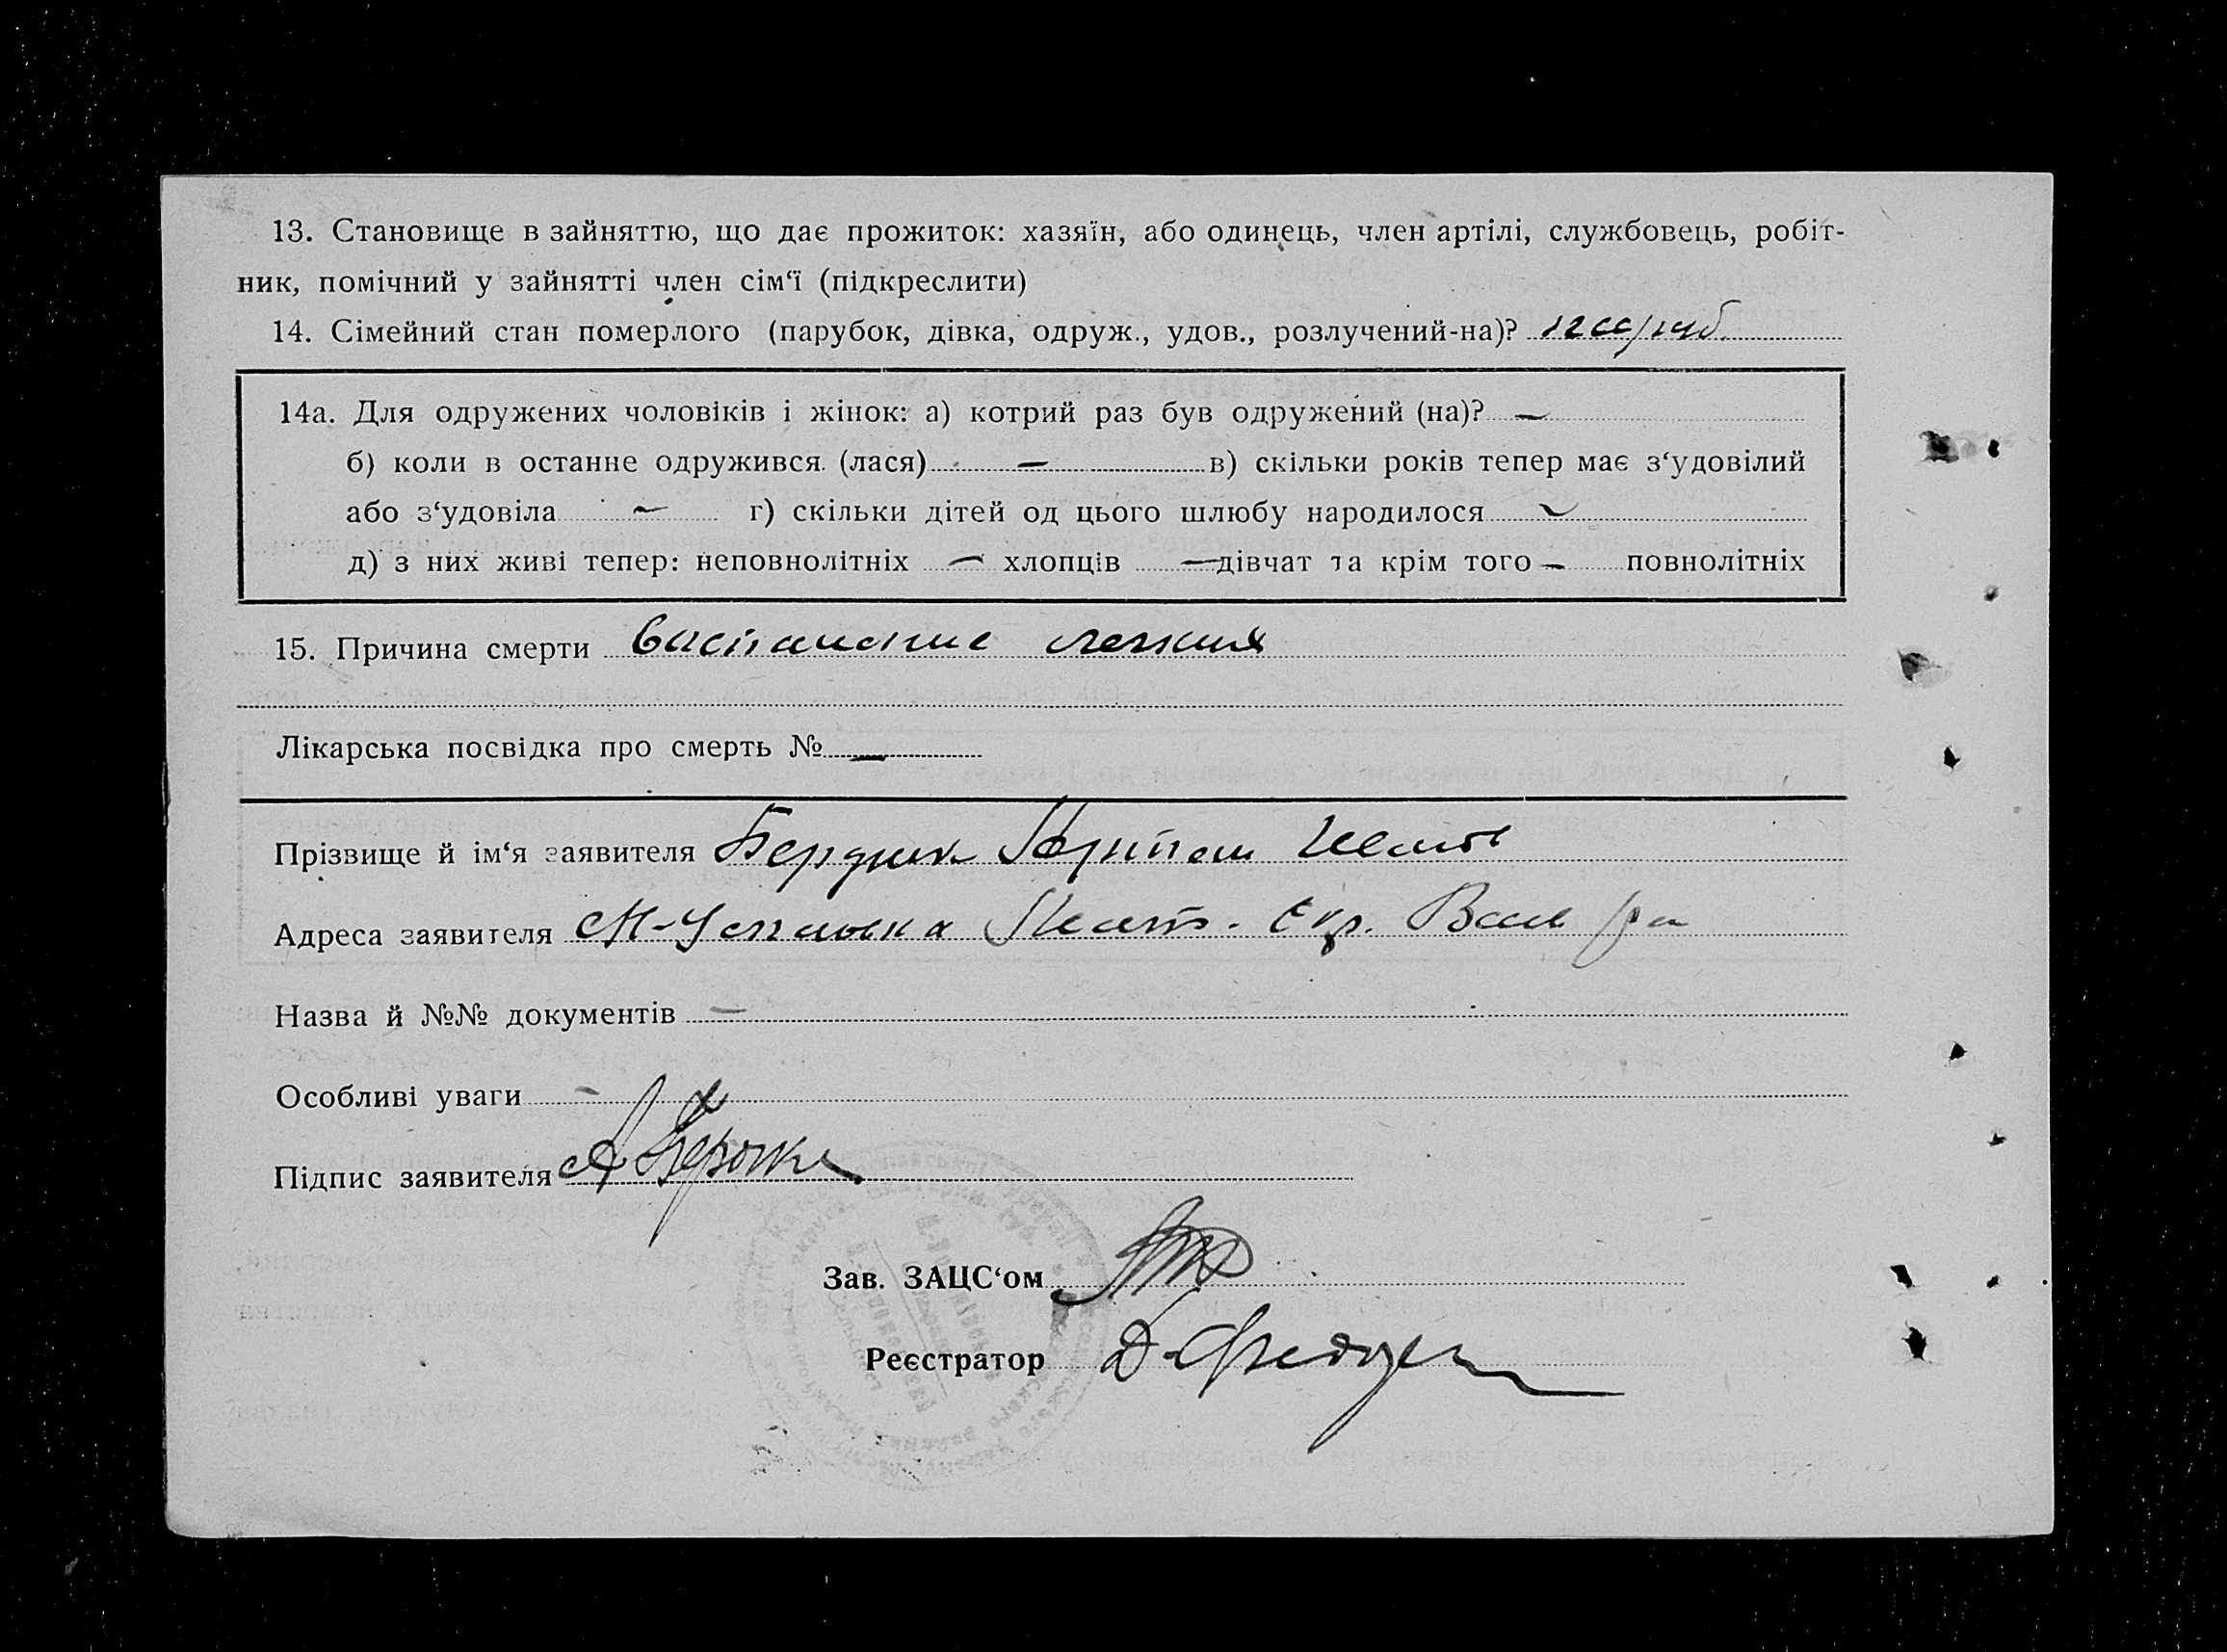 13. Становище в зайняттю, що дає прожиток: хазяїн, або одинець, член артілі, службовець, робіт-
ник, помічний у зайнятті член сім‘ї (підкреслити)
14. Сімейний стан померлого (парубок, дівка, одруж., удов., розлучений-на)? паруб.
14а. Для одружених чоловіків і жінок: а) котрий раз був одружений (на)? —
б) коли в останнє одружився. (лася) — в) скільки років тепер має з‘удовілий
або з‘удовіла — г) скільки дітей од цього шлюбу народилося —
д) з них живі тепер: неповнолітніх — хлопців — дівчат та крім того — повнолітніх
15. Причина смерти Воспаление легких
Лікарська посвідка про смерть № —
Прізвище й ім‘я заявителя Бердник
Адреса заявителя
Назва й №№ документів —
Особливі уваги —
Підпис заявителя
Зав. ЗАЦС‘ом
Реєстратор